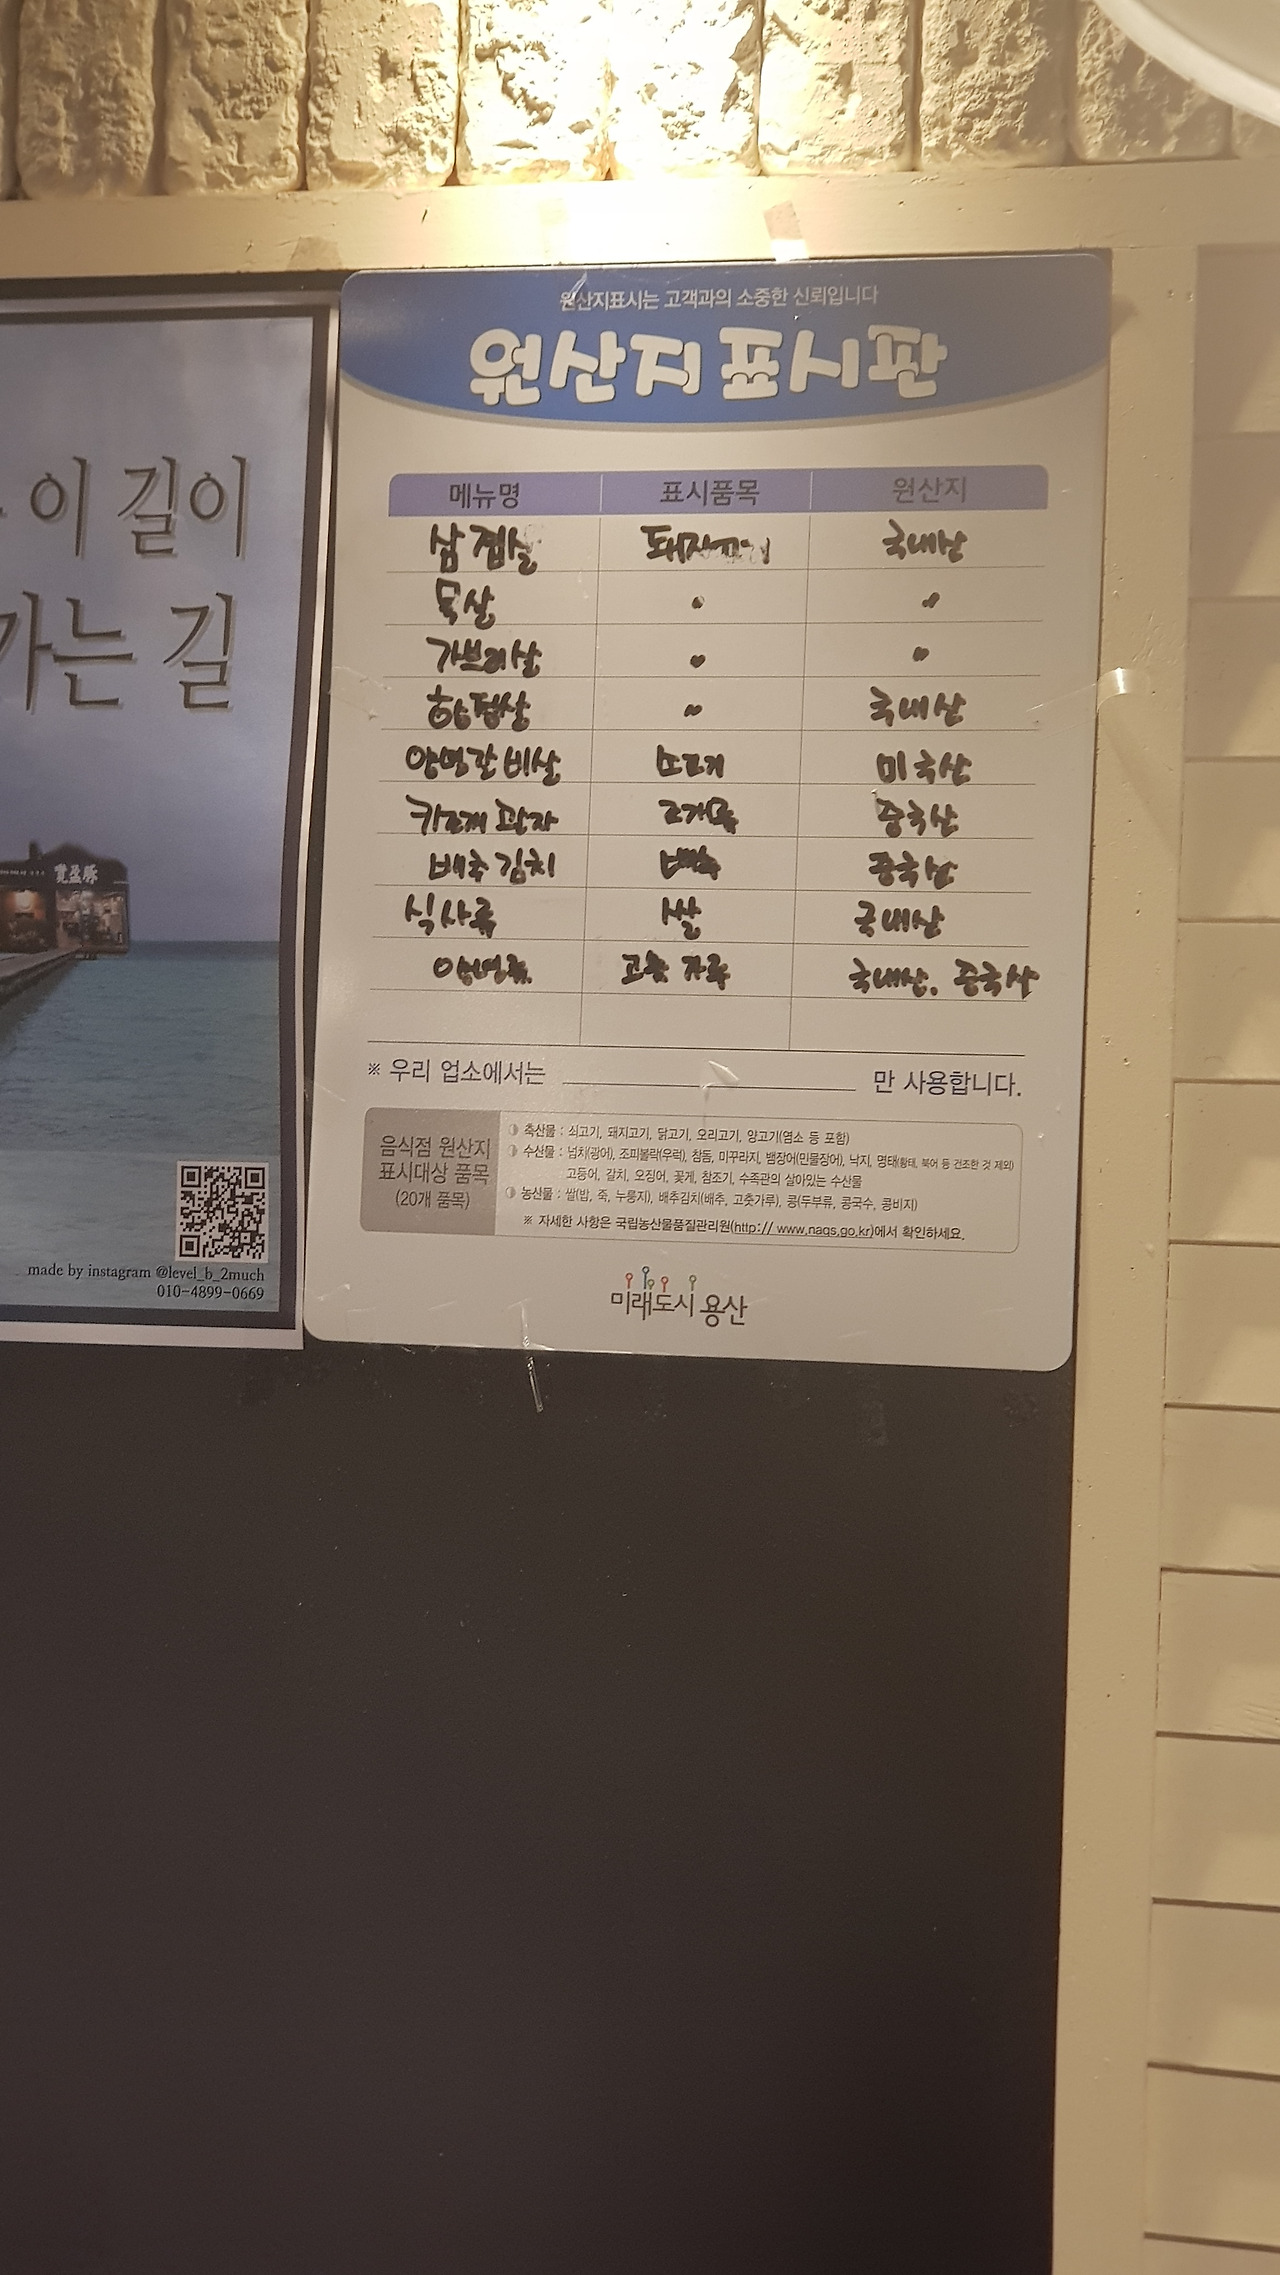 이 길이
가는 길
賣盈豚
made by instagram @level_b_2much
010-4899-0669
원산지표시는 고객과의 소중한 신뢰입니다
원산지 표시판
메뉴명 표시품목 원산지
삼겹살 돼지고기 국내산
목살 〃 〃
가브리살 〃 〃
항정살 〃 국내산
양념갈비살 소고기 미국산
키조개 관자 조개류 중국산
배추김치 배추 중국산
식사류 쌀 국내산
양념류 고춧가루 국내산, 중국산
※ 우리 업소에서는 만 사용합니다.
음식점 원산지
표시대상 품목
(20개 품목)
축산물 : 쇠고기, 돼지고기, 닭고기, 오리고기, 양고기(염소 등 포함)
수산물 : 넙치(광어), 조피볼락(우럭), 참돔, 미꾸라지, 뱀장어(민물장어), 낙지, 명태(황태, 북어 등 건조한 것 제외)
고등어, 갈치, 오징어, 꽃게, 참조기, 수족관의 살아있는 수산물
농산물 : 쌀(밥, 죽, 누룽지), 배추김치(배추, 고춧가루), 콩(두부류, 콩국수, 콩비지)
※ 자세한 사항은 국립농산물품질관리원(http:// www.naqs.go.kr)에서 확인하세요.
미래도시 용산